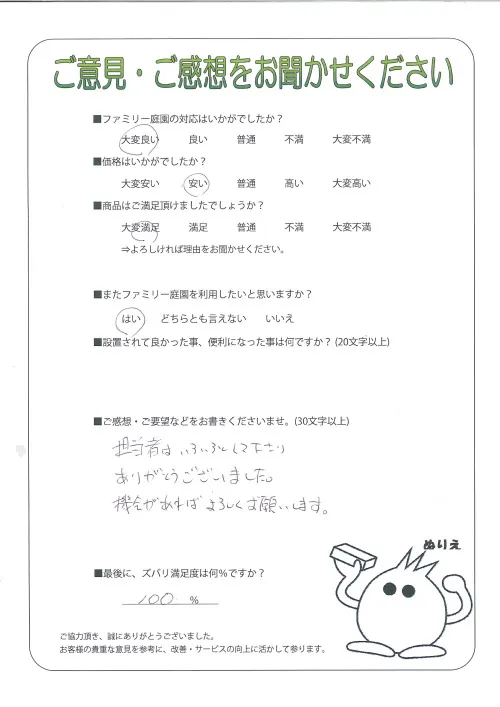 ご意見・ご感想をお聞かせください
■ファミリー庭園の対応はいかがでしたか？
大変良い 良い 普通 不満 大変不満
■価格はいかがでしたか？
大変安い 安い 普通 高い 大変高い
■商品はご満足頂けましたでしょうか？
大変満足 満足 普通 不満 大変不満
⇒よろしければ理由をお聞かせください。
■またファミリー庭園を利用したいと思いますか？
はい どちらとも言えない いいえ
■設置されて良かった事、便利になった事は何ですか？(20文字以上)
■ご感想・ご要望などをお書きくださいませ。(30文字以上)
担当者は いろいろとして下さり
ありがとうございました。
機会があれば よろしくお願いします。
ぬりえ
■最後に、ズバリ満足度は何%ですか？
100 %
ご協力頂き、誠にありがとうございました。
お客様の貴重な意見を参考に、改善・サービスの向上に活かして参ります。